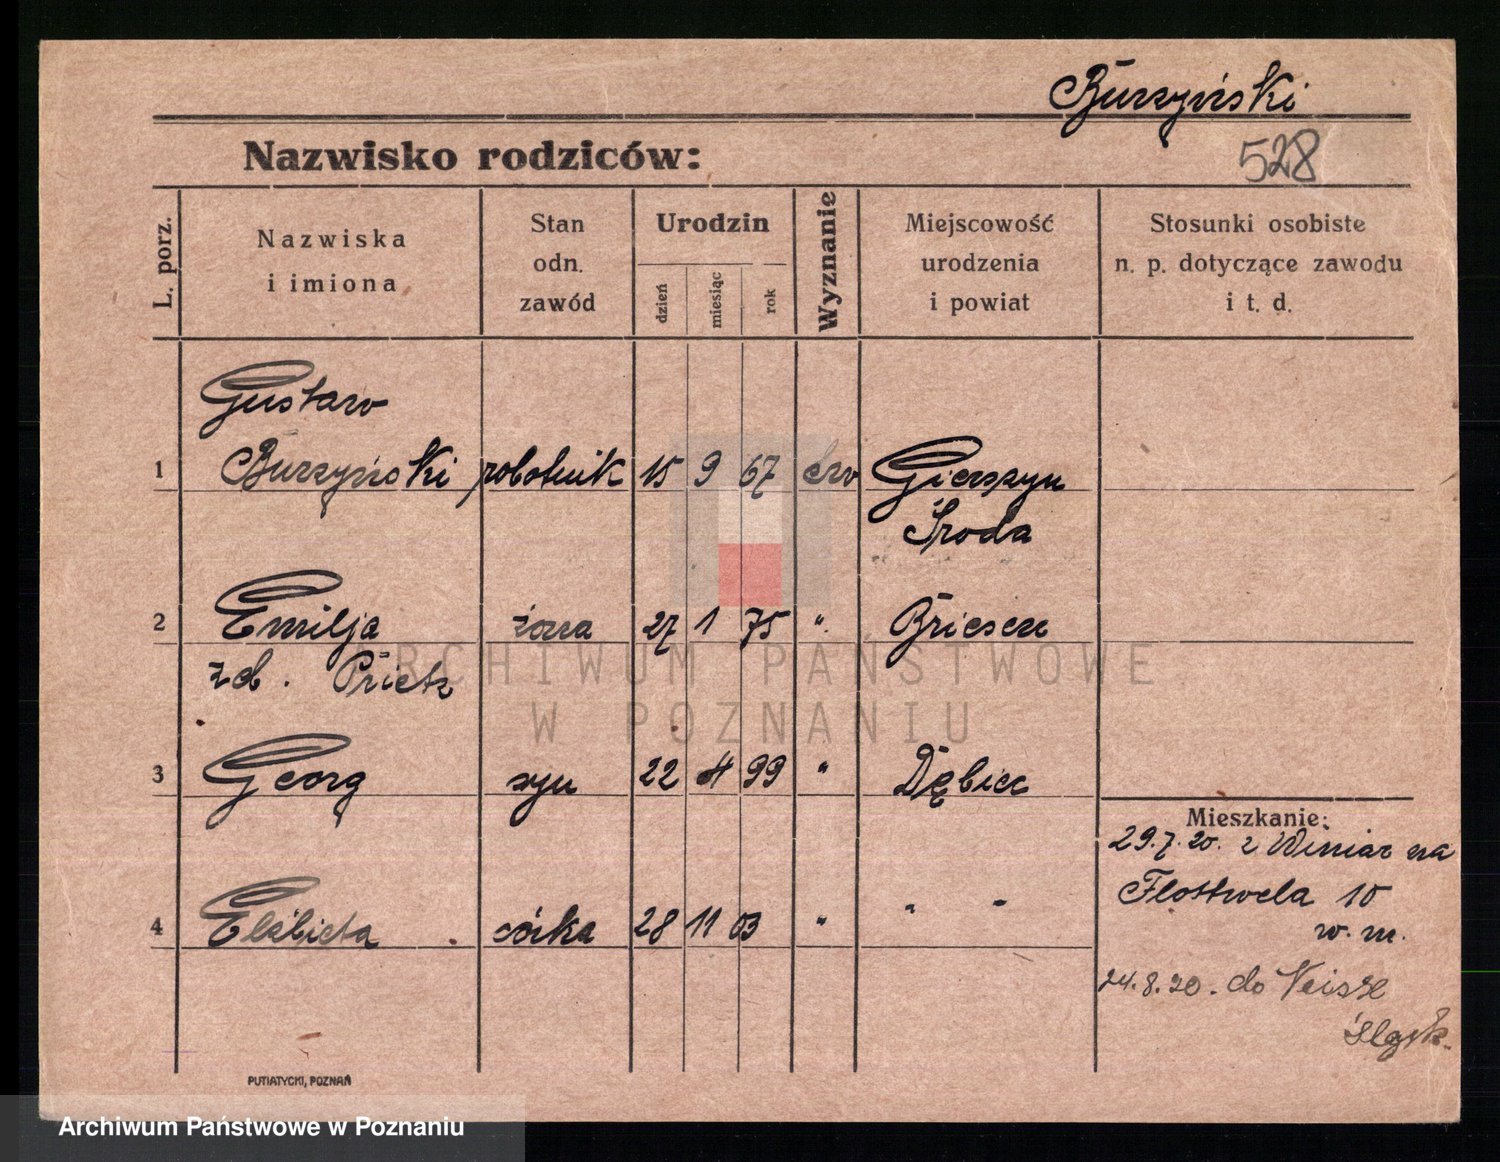 Burszyński
Nazwisko rodziców:
528
L. porz.
Nazwiska
i imiona
Stan
odn.
zawód
Urodzin
dzień
miesiąc
rok
Wyznanie
Miejscowość
urodzenia
i powiat
Stosunki osobiste
n. p. dotyczące zawodu
i t. d.
Gustaw
1 Burszyński robotnik 15 9 67 ew Gierszyn
Środa
2 Emilja żona 27 1 75 " Briesen
zd. Prietz
3 Georg syn 22 4 99 " Dębiec
Mieszkanie:
29.7.20. z Winiar na
Flottwela 10
4 Elżbieta córka 28 11 03 " " "
w. m.
24.8.20. do Neisse
Śląsk.
PUTIATYCKI, POZNAŃ
ARCHIWUM PAŃSTWOWE
W POZNANIU
Archiwum Państwowe w Poznaniu